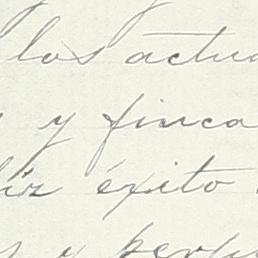 los actua
y finca
liz éxito
s y perju